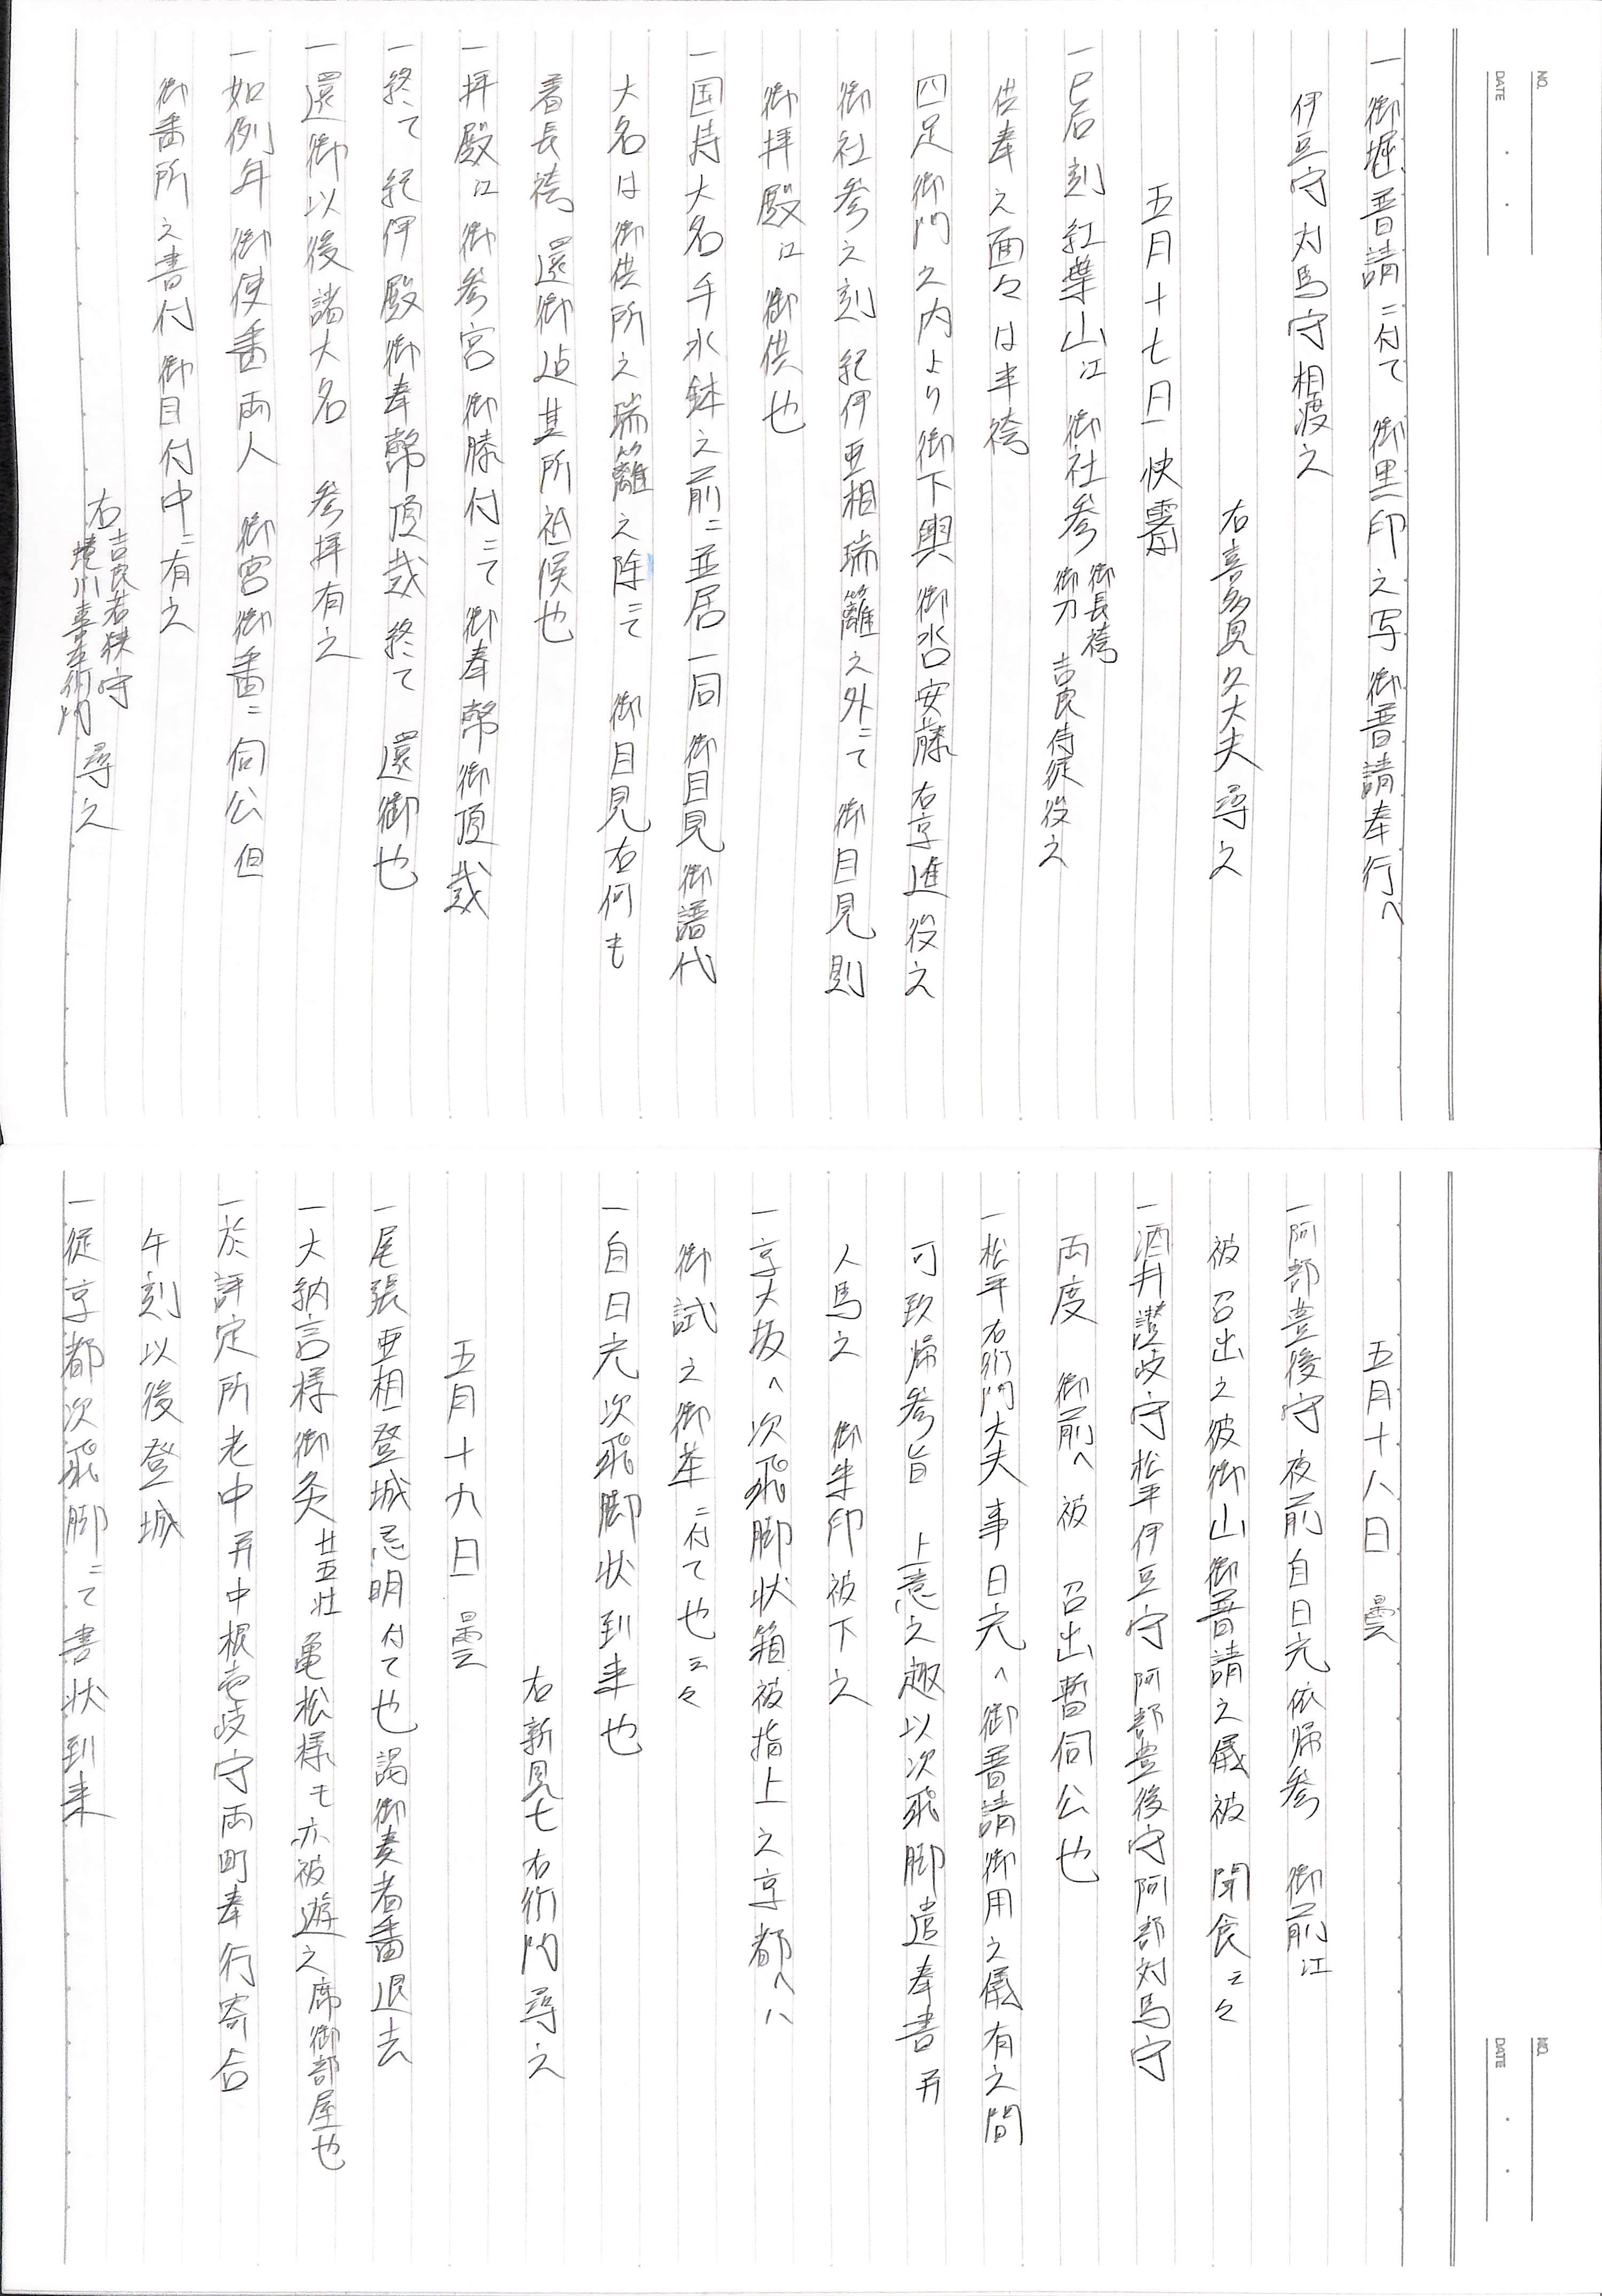 NO.
DATE
一御堀普請ニ付て 御黒印之写 御普請奉行へ
伊豆守対馬守相渡之
右喜多見久大夫尋之
五月十七日 快霽
一巳后刻紅葉山江 御社参 御長袴 御刀 吉良侍従役之
供奉之面々は半袴
四足御門之内より御下輿 御沓安藤右京進役之
御社参之刻紀伊亜相瑞籬之外ニて 御目見則
御拝殿江御供也
一国持大名手水鉢之前ニ並居一同 御目見 御譜代
大名は御供所之瑞籬之除ニて 御目見右何も
着長袴 還御迠其所祗候也
一拝殿江御参宮 御勝付ニて 御奉幣御頂戴
一終て 紀伊殿御奉幣頂戴 終て 還御也
一還御以後諸大名 参拝有之
一如例年 御使番両人 御宮御番ニ伺公但
御番所之書付 御目付中ニ有之
右 吉良若狭守 境川喜左衛門 尋之
五月十八日 曇
一阿部豊後守夜前自日光依帰参 御前江
被召出之彼御山御普請之儀被 聞食云々
一酒井讃岐守松平伊豆守阿部豊後守阿部対馬守
両度 御前へ 被 召出暫伺公也
一松平右衛門大夫事日光へ御普請御用之儀有之間
可致帰参旨 上意之趣以次飛脚遣奉書并
人馬之 御朱印被下之
一京大坂へ次飛脚状箱被指上之京都へハ
御試之御茶ニ付て也云々
一自日光次飛脚状到来也
右新見七右衛門尋之
五月十九日 曇
一尾張亜相登城忌明付て也 謁御奏者番退去
一大納言様御灸 廿五壮 亀松様も亦被遊之 席御部屋也
一於評定所老中并中根壱岐守両町奉行寄合
午刻以後登城
一従京都次飛脚ニて書状到来
NO.
DATE